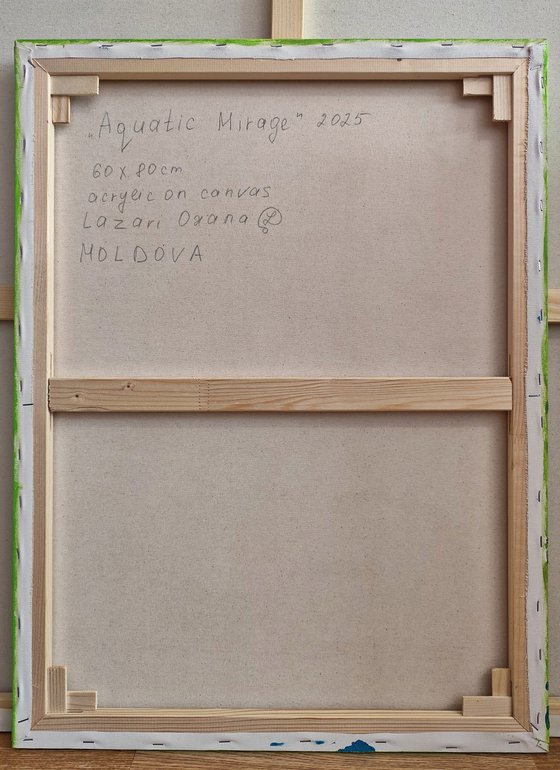 „Aquatic Mirage" 2025
60 x 80cm
acrylic on canvas
Lazari Oxana
MOLDOVA